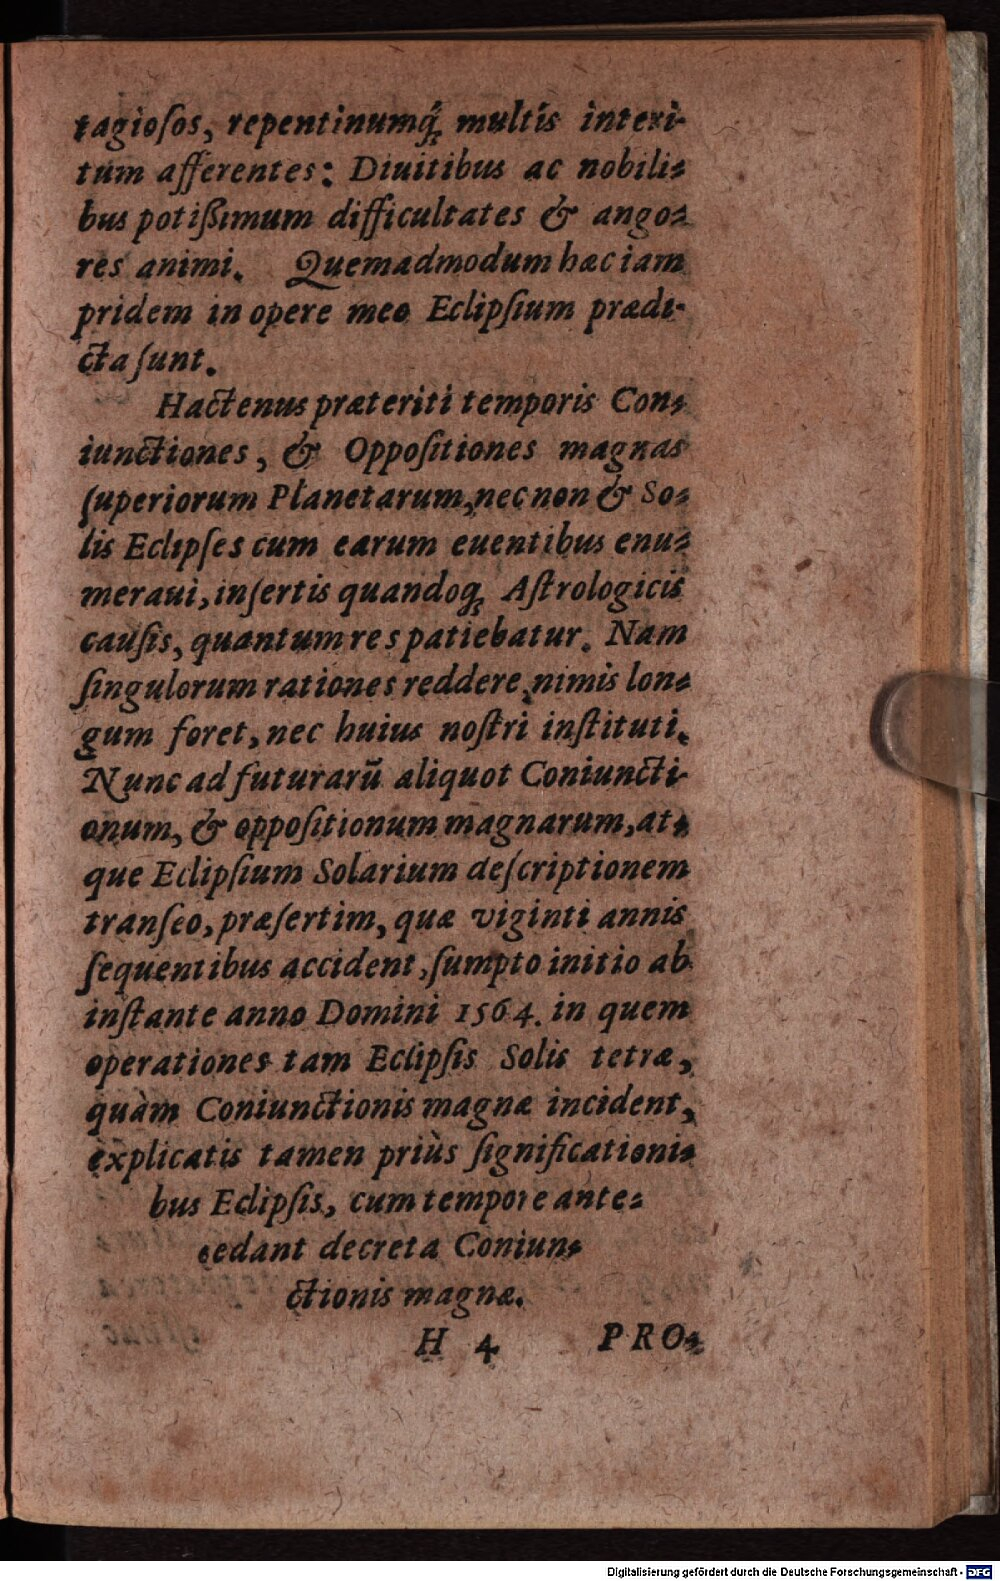 tagioſos, repentinumq́; multis interi-
tum afferentes: Diuitibus ac nobili-
bus potißimum difficultates & ango-
res animi. Quemadmodum hæc iam
pridem in opere meo Eclipſium prædi-
cta ſunt.
Hactenus præteriti temporis Con-
iunctiones, & Oppoſitiones magnas
ſuperiorum Planetarum, nec non & So-
lis Eclipſes cum earum euentibus enu-
meraui, inſertis quandoq; Aſtrologicis
cauſis, quantum res patiebatur. Nam
ſingulorum rationes reddere, nimis lon-
gum foret, nec huius noſtri inſtituti.
Nunc ad futurarū aliquot Coniuncti-
onum, & oppoſitionum magnarum, at-
que Eclipſium Solarium deſcriptionem
tranſeo, præſertim, quæ viginti annis
ſequentibus accident, ſumpto initio ab
inſtante anno Domini 1564. in quem
operationes tam Eclipſis Solis tetræ,
quàm Coniunctionis magnæ incident,
explicatis tamen priùs ſignificationi-
bus Eclipſis, cum tempore ante-
cedant decreta Coniun-
ctionis magnæ.
H 4 PRO-
Digitalisierung gefördert durch die Deutsche Forschungsgemeinschaft - DFG